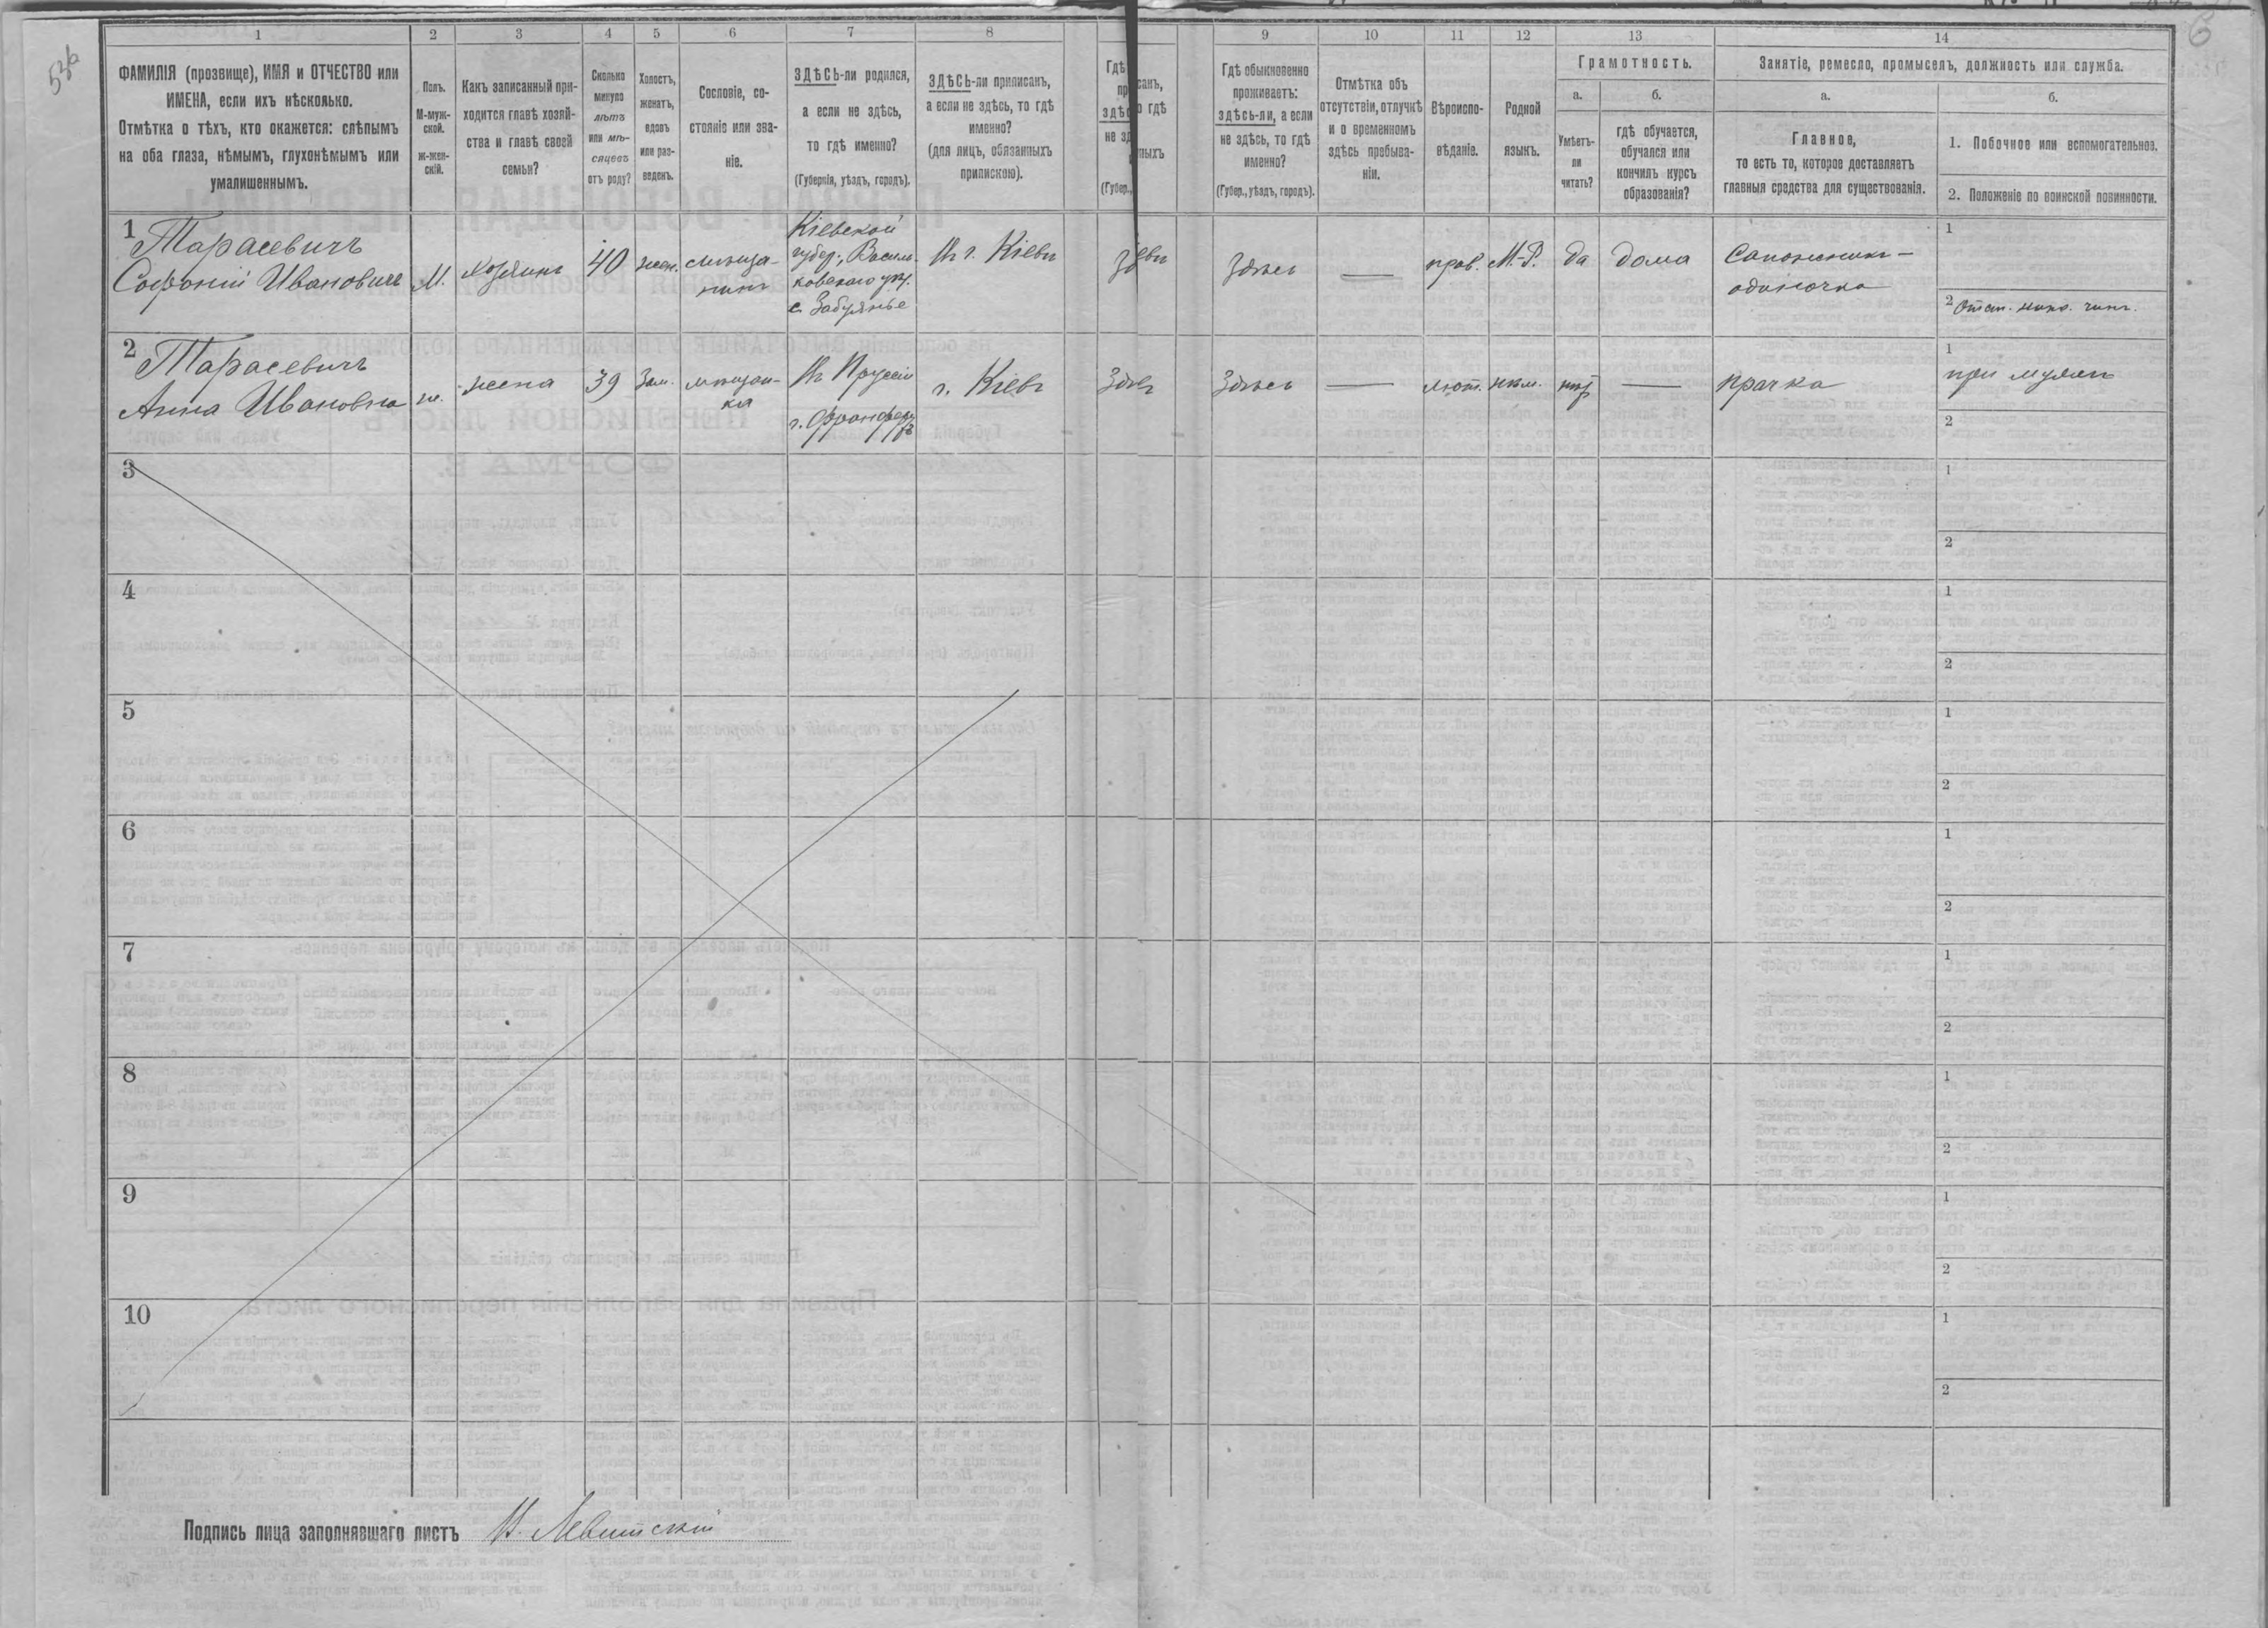 53б
6
1
2
3
4
5
6
7
8
9
10
11
12
13
14
ФАМИЛІЯ (прозвище), ИМЯ и ОТЧЕСТВО или
ИМЕНА, если ихъ нѣсколько.
Отмѣтка о тѣхъ, кто окажется: слѣпымъ
на оба глаза, нѣмымъ, глухонѣмымъ или
умалишеннымъ.
Полъ.
М-муж-
ской.
ж-жен-
скій.
Какъ записанный при-
ходится главѣ хозяй-
ства и главѣ своей
семьи?
Сколько
минуло
лѣтъ
или мѣ-
сяцевъ
отъ роду?
Холостъ,
женатъ,
вдовъ
или раз-
веденъ.
Сословіе, со-
стояніе или зва-
ніе.
ЗДѢСЬ-ли родился,
а если не здѣсь,
то гдѣ именно?
(Губернія, уѣздъ, городъ).
ЗДѢСЬ-ли приписанъ,
а если не здѣсь, то гдѣ
именно?
(для лицъ, обязанныхъ
припискою).
Гдѣ
пр
здѣс
не зд
(Губер.,
санъ,
о гдѣ
ныхъ
Гдѣ обыкновенно
проживаетъ:
здѣсь-ли, а если
не здѣсь, то гдѣ
именно?
(Губер., уѣздъ, городъ).
Отмѣтка объ
отсутствіи, отлучкѣ
и о временномъ
здѣсь пребыва-
ніи.
Вѣроиспо-
вѣданіе.
Родной
языкъ.
Грамотность.
а.
б.
Умѣетъ-
ли
читать?
гдѣ обучается,
обучался или
кончилъ курсъ
образованія?
Занятіе, ремесло, промыселъ, должность или служба.
а.
б.
Главное,
то есть то, которое доставляетъ
главныя средства для существованія.
1. Побочное или вспомогательное.
2. Положеніе по воинской повинности.
1
Тарасевичъ
Софоній Ивановичъ
М.
хозяинъ
40
жен.
мѣща-
нинъ
Кіевской
губер., Василь
ковскаго уѣз.
с. Забуянье
Въ г. Кіевѣ
здѣсь
прав.
М.-Р.
да
дома
Сапожникъ –
одиночка
1
2 Отст. ниж. чинъ.
2
Тарасевичъ
Анна Ивановна
ж.
жена
39
Зам.
мѣщан-
ка
Въ Пруссіи
г. Франкфур
тъ
г. Кіевъ
Здѣсь
лют.
нѣм.
нѣт
прачка
1
при мужѣ
2
3
1
2
4
1
2
5
1
2
6
1
2
7
1
2
8
1
2
9
1
2
10
1
2
Подпись лица заполнявшаго листъ Н. Левитскій